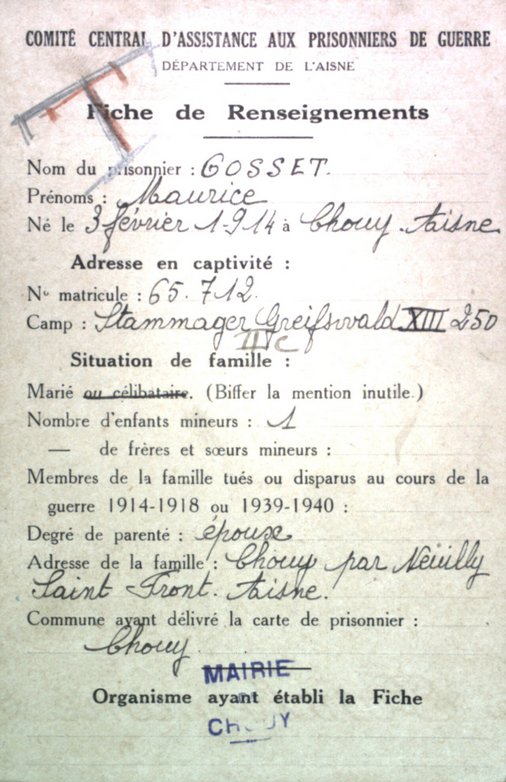 COMITÉ CENTRAL D'ASSISTANCE AUX PRISONNIERS DE GUERRE
DÉPARTEMENT DE L'AISNE
Fiche de Renseignements
Nom du prisonnier : GOSSET.
Prénoms : Maurice
Né le 3 février 1914 à Chouy. Aisne.
Adresse en captivité :
N° matricule : 65.712.
Camp : Stammager Greifswald XIII 250
II C
Situation de famille :
Marié ou célibataire. (Biffer la mention inutile.)
Nombre d'enfants mineurs : 1
— de frères et sœurs mineurs :
Membres de la famille tués ou disparus au cours de la
guerre 1914-1918 ou 1939-1940 :
Degré de parenté : épouse
Adresse de la famille : Chouy par Neüilly
Saint-Front. Aisne.
Commune ayant délivré la carte de prisonnier :
Chouy
MAIRIE
Organisme ayant établi la Fiche
CHOUY